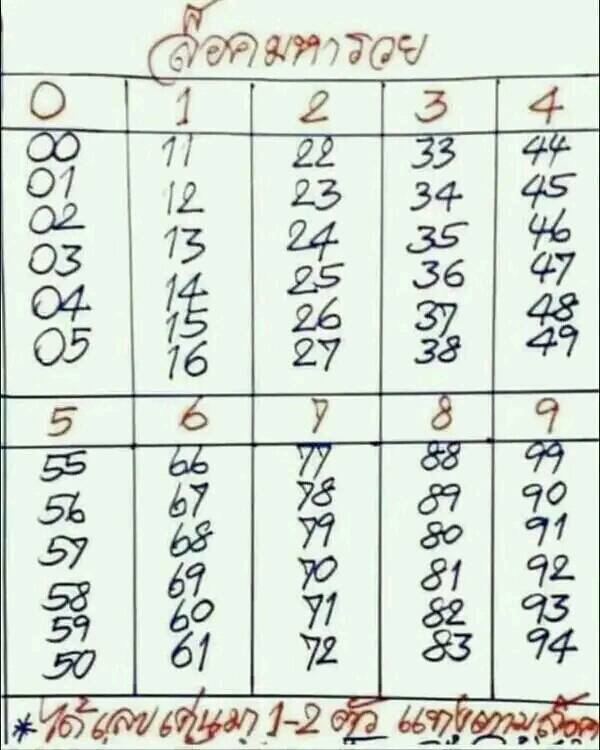 ล็อคมหารวย
0 1 2 3 4
00 11 22 33 44
01 12 23 34 45
02 13 24 35 46
03 14 25 36 47
04 15 26 37 48
05 16 27 38 49
5 6 7 8 9
55 66 77 88 99
56 67 78 89 90
57 68 79 80 91
58 69 70 81 92
59 60 71 82 93
50 61 72 83 94
*ได้เลขเด่นมา 1-2 ตัว แทงตามล็อค